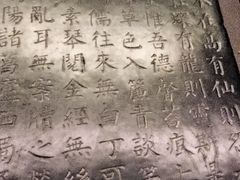 在高有仙則
深有龍則靈斯
惟吾德馨苔痕上
草色入簾青談
儒往來無白丁可
素琴閱金經無絲
亂耳無案牘之勞
陽諸葛廬西蜀